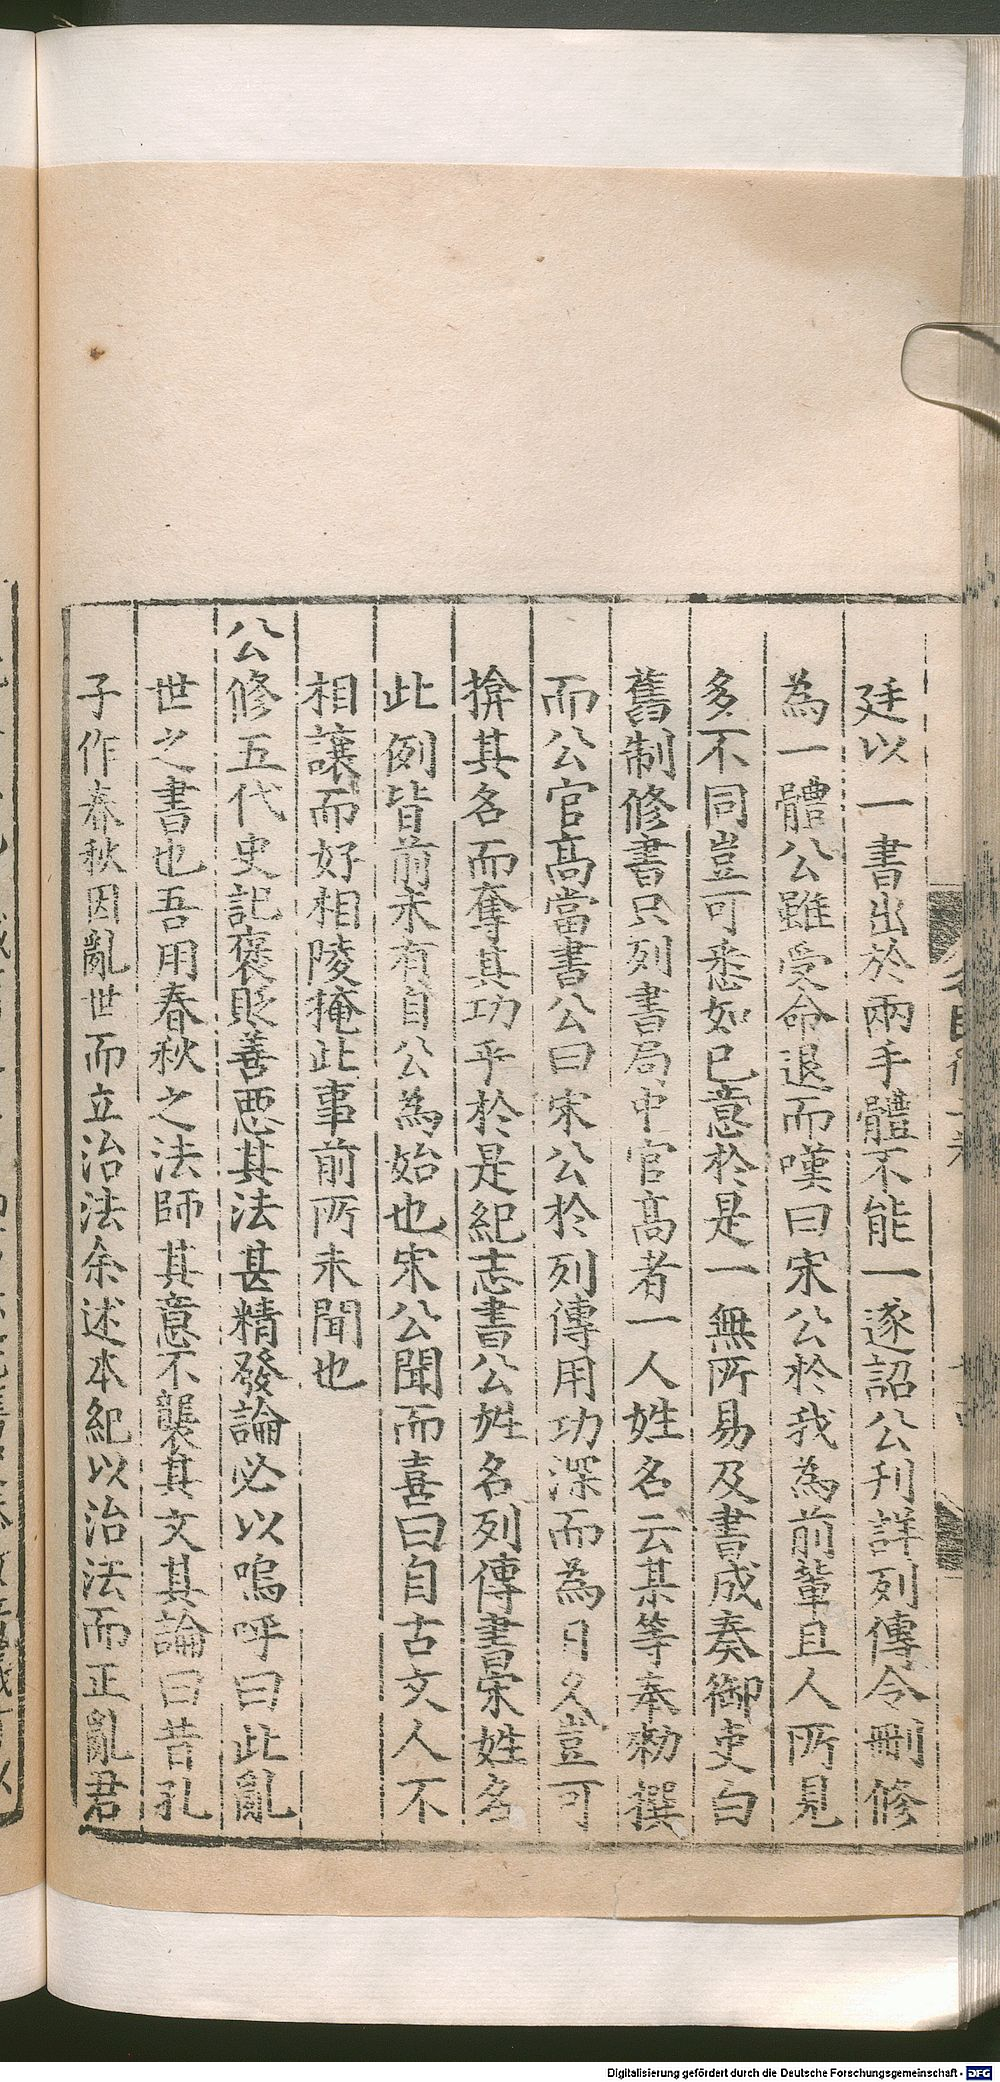 廷以一書出於兩手體不能一遂詔公刋詳列傳令刪修
為一體公雖受命退而嘆曰宋公於我為前輩且人所見
多不同豈可悉如已意於是一無所易及書成奏御吏白
舊制修書只列書局中官髙者一人姓名云某等奉勑撰
而公官髙當書公曰宋公於列傳用功深而為日久豈可
揜其名而奪其功乎於是紀志書公姓名列傳書宋姓名
此例皆前未有自公為始也宋公聞而喜曰自古文人不
相讓而好相陵掩此事前所未聞也
公修五代史記褒貶善惡其法甚精發論必以嗚呼曰此亂
世之書也吾用春秋之法師其意不襲其文其論曰昔孔
子作春秋因亂世而立治法余述本紀以治法而正亂君
Digitalisierung gefördert durch die Deutsche Forschungsgemeinschaft - DFG